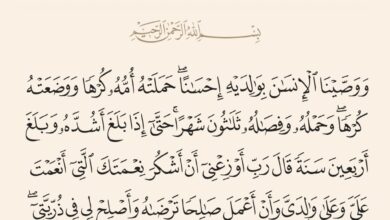 بِسْمِ اللَّهِ الرَّحْمَٰنِ الرَّحِيمِ
وَوَصَّيْنَا ٱلْإِنسَـٰنَ بِوَٰلِدَيْهِ إِحْسَـٰنًا ۖ حَمَلَتْهُ أُمُّهُۥ كُرْهًا وَوَضَعَتْهُ
كُرْهًا ۖ وَحَمْلُهُۥ وَفِصَـٰلُهُۥ ثَلَـٰثُونَ شَهْرًا ۚ حَتَّىٰٓ إِذَا بَلَغَ أَشُدَّهُۥ وَبَلَغَ
أَرْبَعِينَ سَنَةً قَالَ رَبِّ أَوْزِعْنِىٓ أَنْ أَشْكُرَ نِعْمَتَكَ ٱلَّتِىٓ أَنْعَمْتَ
عَلَىَّ وَعَلَىٰ وَٰلِدَىَّ وَأَنْ أَعْمَلَ صَـٰلِحًا تَرْضَىٰهُ وَأَصْلِحْ لِى فِى ذُرِّيَّتِىٓ ۖ